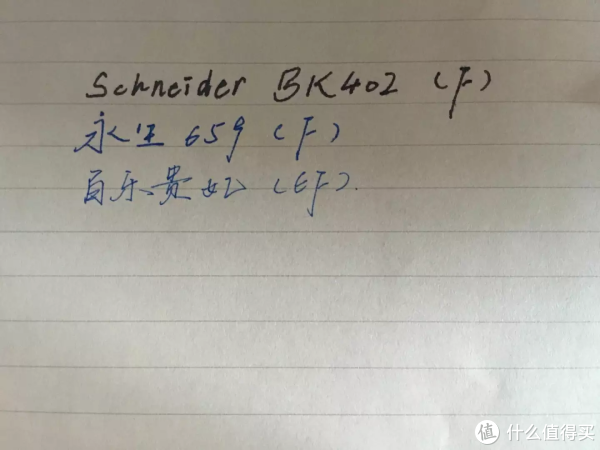 Schneider BK402 (F)
永生 659 (F)
百乐贵妃 (EF).
值 什么值得买